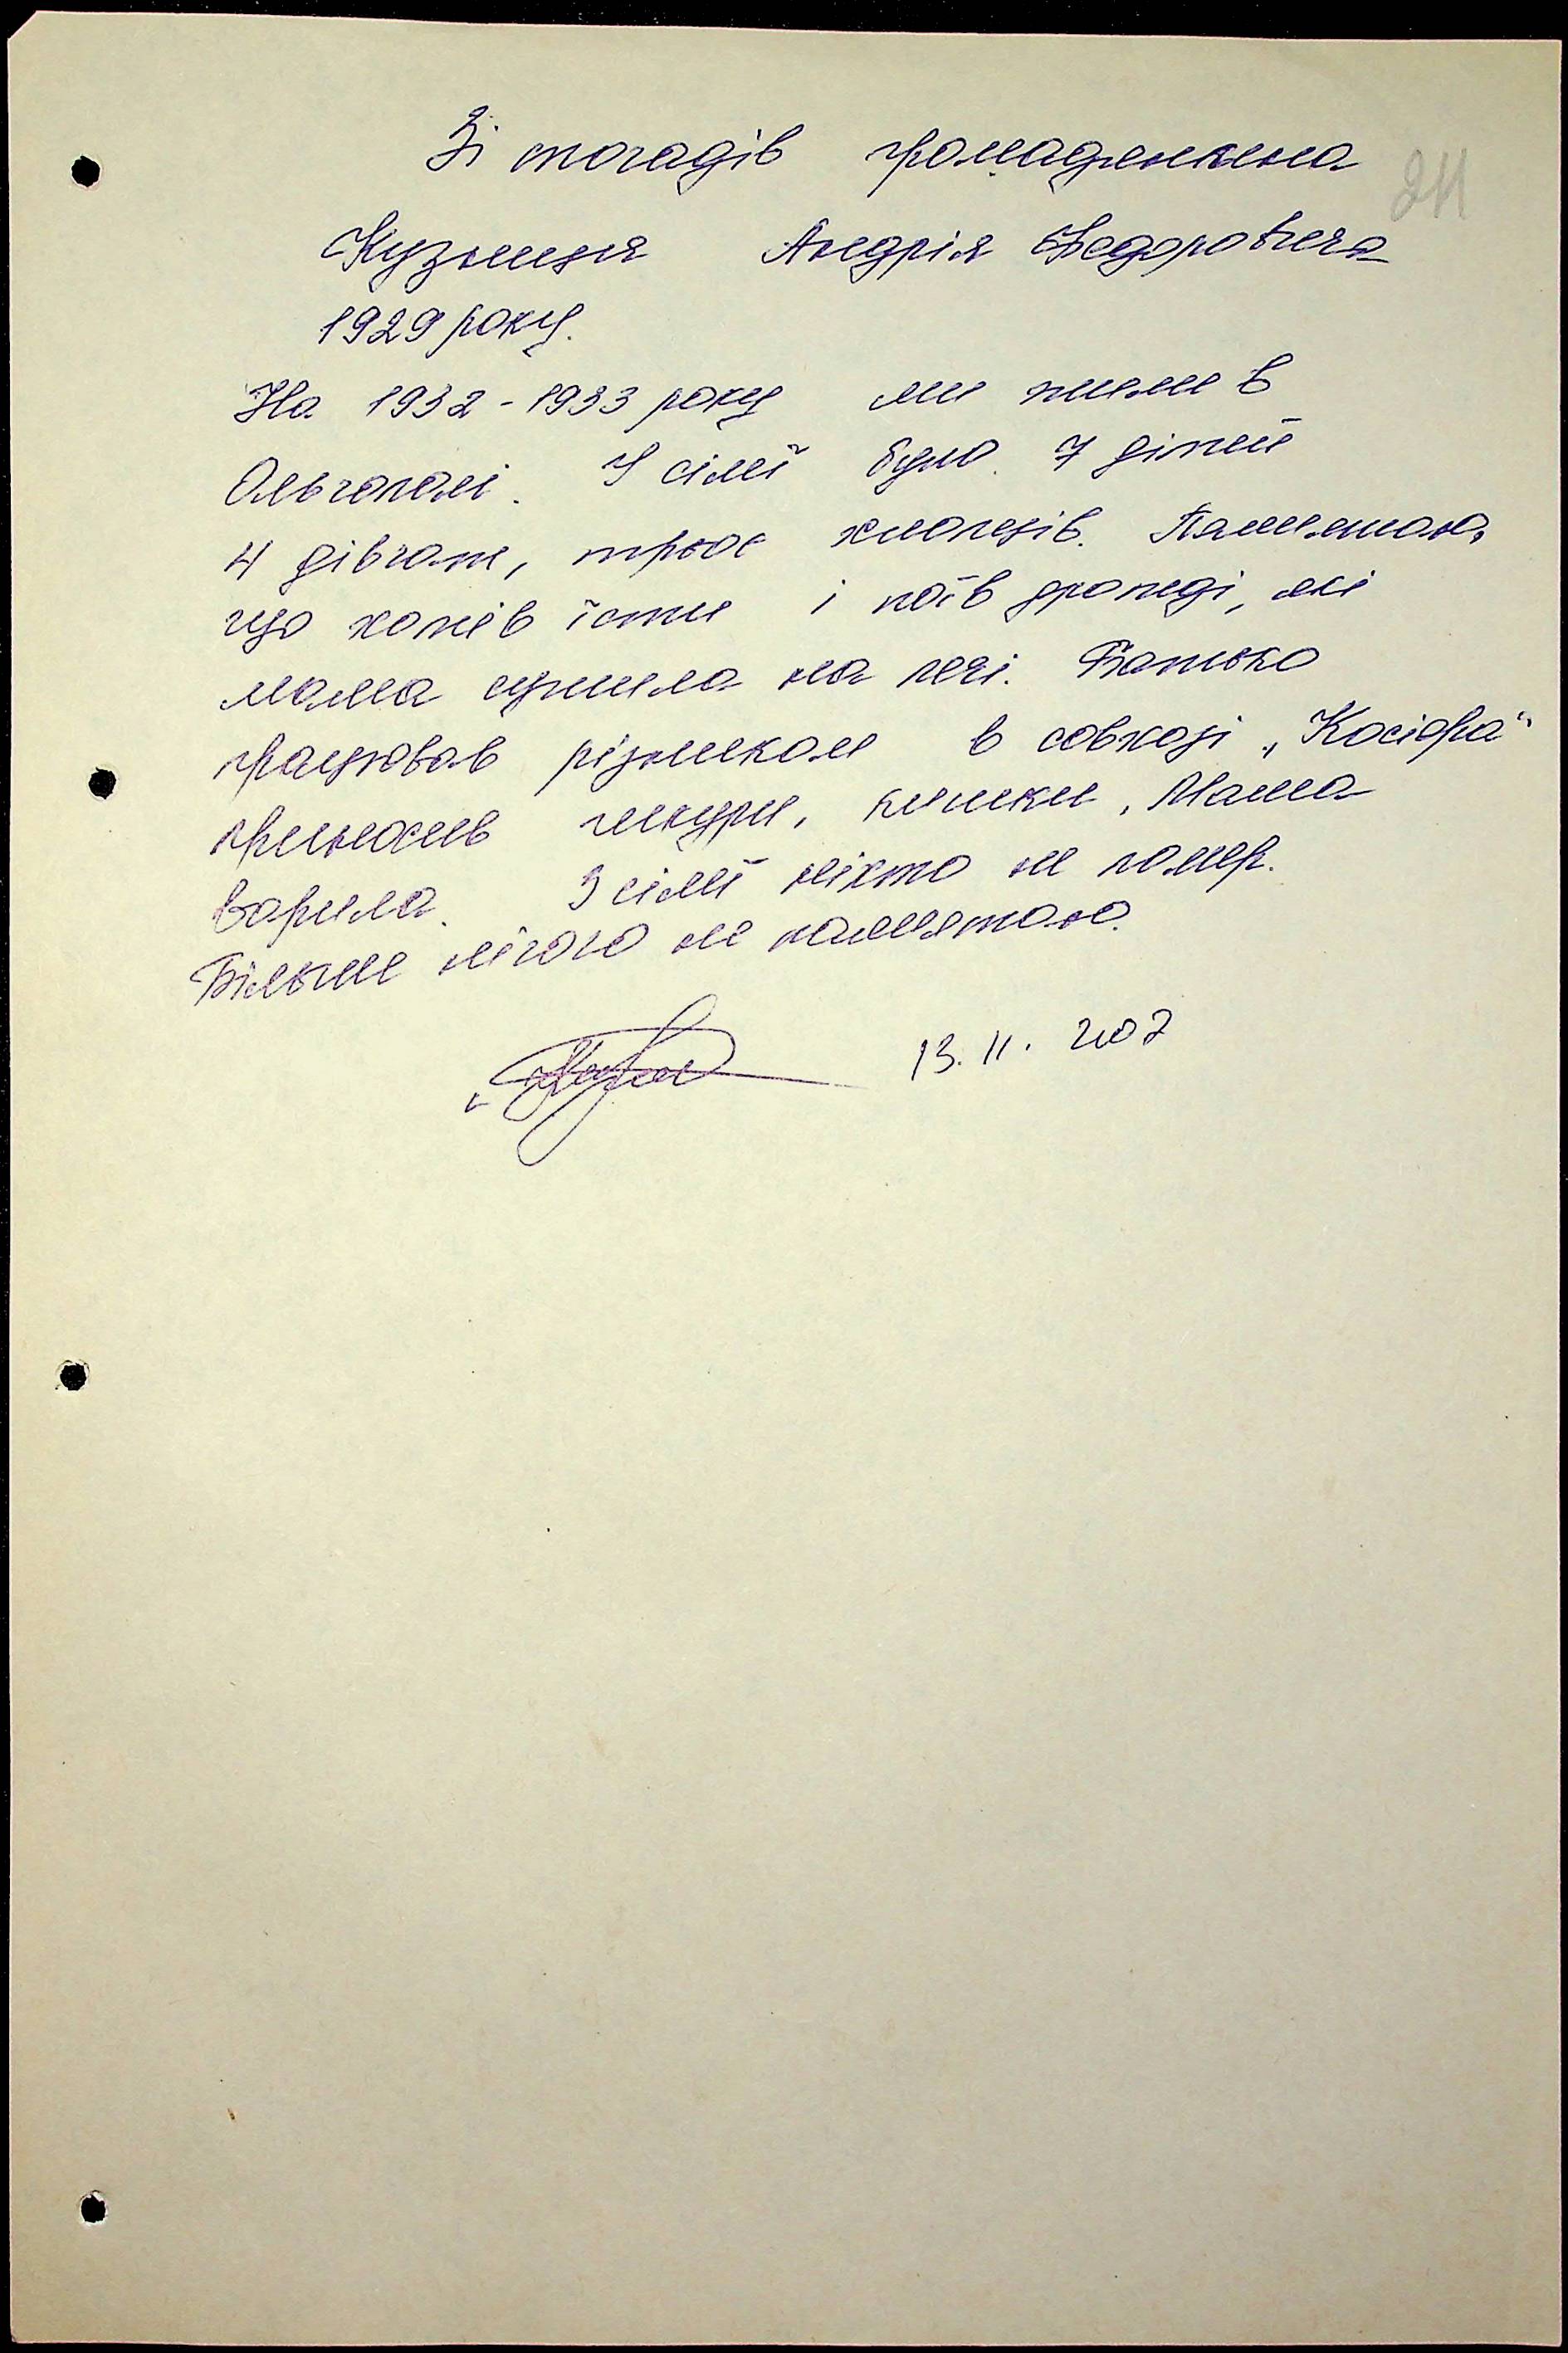 Зі спогадів громадянина
211
Кузьмця Андрія Федоровича
1929 року.
На 1932-1933 року ми жили в
Ольгополі. У сімї було 7 дітей
4 дівчат, трьос хлопців. Памятаю,
що хотів їсти і поїв дрожді, які
мама сушила на печі. Батько
працював різником в совхозі „Косіора"
приносив шкури, кишки, Мама
варила. З сімї ніхто не помер.
Більше нічого не памятаю.
13.11. 2007